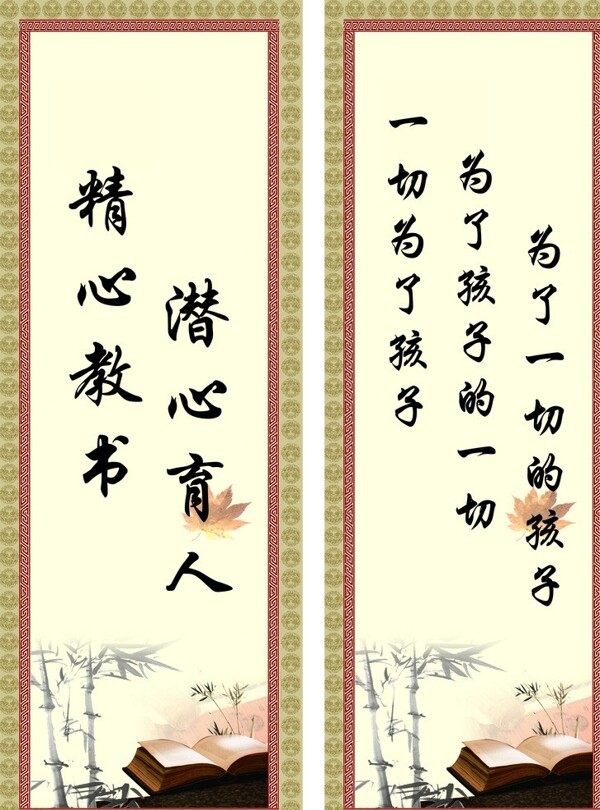 精心教书
潜心育人
一切为了孩子
为了孩子的一切
为了一切的孩子